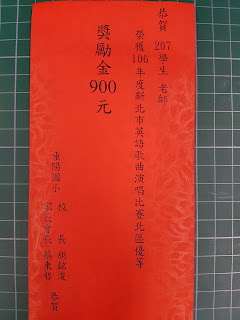 恭賀 207學生 老師
榮獲106年度新北市英語歌曲演唱比賽北區優等
獎勵金900元
重陽國小
校 長 胡銘浚
家長會長 蔡東哲
恭賀